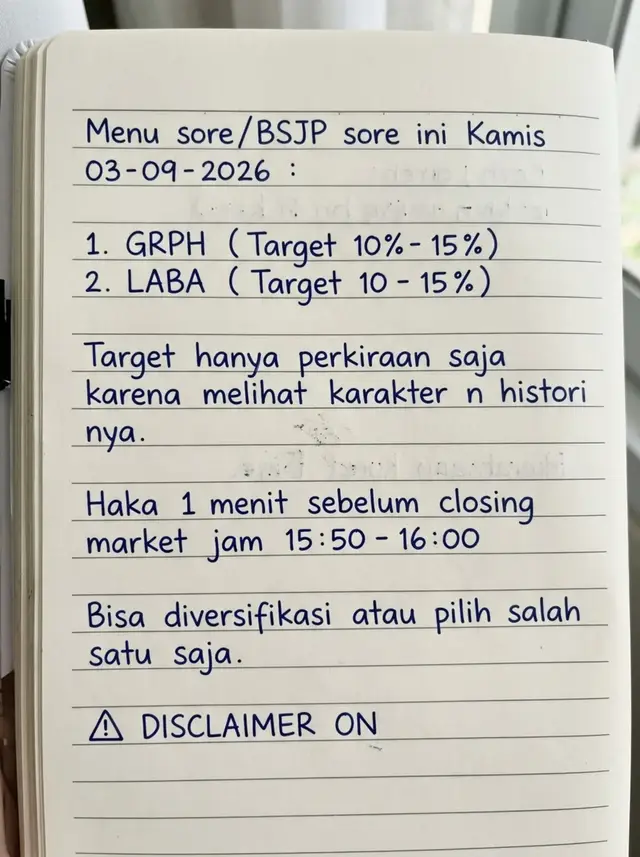 Menu sore/BSJP sore ini Kamis
03-09-2026 :
1. GRPH ( Target 10%-15%)
2. LABA ( Target 10 - 15%)
Target hanya perkiraan saja
karena melihat karakter n histori
nya.
Haka 1 menit sebelum closing
market jam 15:50 - 16:00
Bisa diversifikasi atau pilih salah
satu saja.
⚠ DISCLAIMER ON